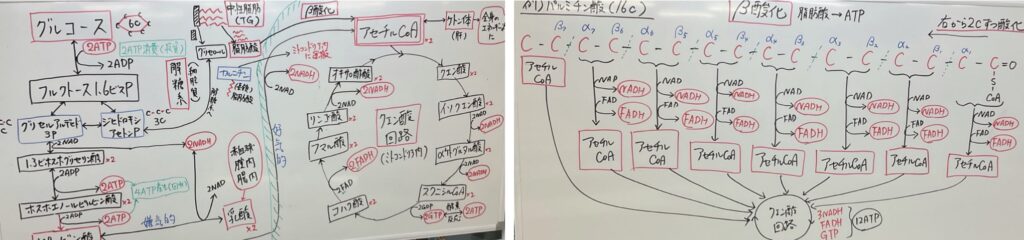 グルコース
6C
2ATP
2ATP消費(投資)
2ADP
フルクトース1.6ビスP
解糖系
細胞質
グリセルアルデヒド3P
ジヒドロキシアセトンP
C-C-C
3C
2NAD
2NADH
1.3ビスホスホグリセリン酸
×2
2ADP
2ATP
4ATP産生(回収)
ホスホエノールピルビン酸
×2
2ADP
2ATP
嫌気的
中性脂肪
(TG)
グリセロール
脂肪酸
カルニチン
ミトコンドリア
赤血球
膣内
腸内
2NAD
乳酸
×2
好気的
β酸化
アセチルCoA
×2
ケトン体
(肝)
全身の
2NADH
オキサロ酢酸
2NADH
2NAD
リンゴ酸
フマル酸
2FADH
2FAD
コハク酸
クエン酸回路
(ミトコンドリア内)
クエン酸
×2
イソクエン酸
×2
2NAD
2NADH
αケトグルタル酸
2NAD
2NADH
スクシニルCoA
×2
2GDP
2GTP
2ATP
例1) パルミチン酸(16C)
β酸化
脂肪酸→ATP
右から2Cずつ酸化
β7 α7 β6 α6 β5 α5 β4 α4 β3 α3 β2 α2 β1 α1
C-C-C-C-C-C-C-C-C-C-C-C-C-C-C-C=O
S-CoA
アセチルCoA
NAD NADH
FAD FADH
NAD NADH
FAD FADH
NAD NADH
FAD FADH
NAD NADH
FAD FADH
NAD NADH
FAD FADH
NAD NADH
FAD FADH
NAD NADH
FAD FADH
アセチルCoA
アセチルCoA
アセチルCoA
アセチルCoA
アセチルCoA
アセチルCoA
アセチルCoA
クエン酸回路
3NADH
FADH
GTP
12ATP